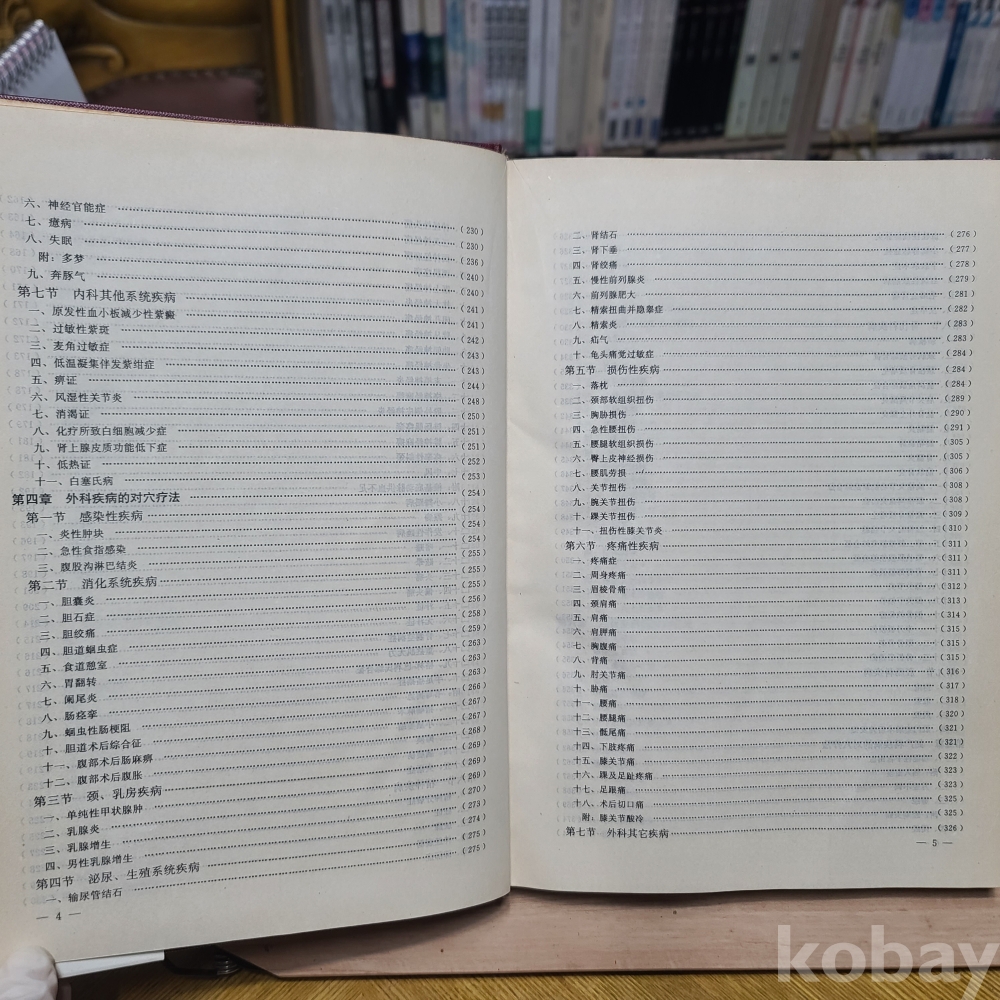 六、神经官能症 (230)
七、癔病 (230)
八、失眠 (236)
附：多梦 (240)
九、奔豚气 (240)
第七节 内科其他系统疾病 (241)
一、原发性血小板减少性紫癜 (241)
二、过敏性紫斑 (242)
三、麦角过敏症 (243)
四、低温凝集伴发紫绀症 (243)
五、痹证 (244)
六、风湿性关节炎 (248)
七、消渴证 (250)
八、化疗所致白细胞减少症 (251)
九、肾上腺皮质功能低下症 (251)
十、低热证 (252)
十一、白塞氏病 (253)
第四章 外科疾病的对穴疗法 (254)
第一节 感染性疾病 (254)
一、炎性肿块 (254)
二、急性食指感染 (254)
三、腹股沟淋巴结炎 (255)
第二节 消化系统疾病 (255)
一、胆囊炎 (256)
二、胆石症 (258)
三、胆绞痛 (259)
四、胆道蛔虫症 (263)
五、食道憩室 (263)
六、胃翻转 (263)
七、阑尾炎 (266)
八、肠痉挛 (267)
九、蛔虫性肠梗阻 (268)
十、胆道术后综合征 (269)
十一、腹部术后肠麻痹 (269)
十二、腹部术后腹胀 (269)
第三节 颈、乳房疾病 (270)
一、单纯性甲状腺肿 (273)
二、乳腺炎 (274)
三、乳腺增生 (275)
四、男性乳腺增生
第四节 泌尿、生殖系统疾病
一、输尿管结石
— 4 —
二、肾结石 (276)
三、肾下垂 (277)
四、肾绞痛 (278)
五、慢性前列腺炎 (279)
六、前列腺肥大 (281)
七、精索扭曲并隐睾症 (282)
八、精索炎 (283)
九、疝气 (283)
十、龟头痛觉过敏症 (284)
第五节 损伤性疾病 (284)
一、落枕 (284)
二、颈部软组织扭伤 (289)
三、胸胁损伤 (290)
四、急性腰扭伤 (291)
五、腰腿软组织损伤 (305)
六、臀上皮神经损伤 (305)
七、腰肌劳损 (306)
八、关节扭伤 (308)
九、腕关节扭伤 (308)
十、踝关节扭伤 (309)
十一、扭伤性膝关节炎 (310)
第六节 疼痛性疾病 (311)
一、疼痛症 (311)
二、周身疼痛 (311)
三、眉棱骨痛 (312)
四、颈肩痛 (313)
五、肩痛 (314)
六、肩胛痛 (315)
七、胸腹痛 (315)
八、背痛 (315)
九、肘关节痛 (316)
十、胁痛 (317)
十一、腰痛 (318)
十二、腰腿痛 (320)
十三、骶尾痛 (321)
十四、下肢疼痛 (321)
十五、膝关节痛 (322)
十六、踝及足趾疼痛 (323)
十七、足跟痛 (323)
十八、术后切口痛 (325)
附：膝关节酸冷 (325)
第七节 外科其它疾病 (326)
— 5 —
kobay